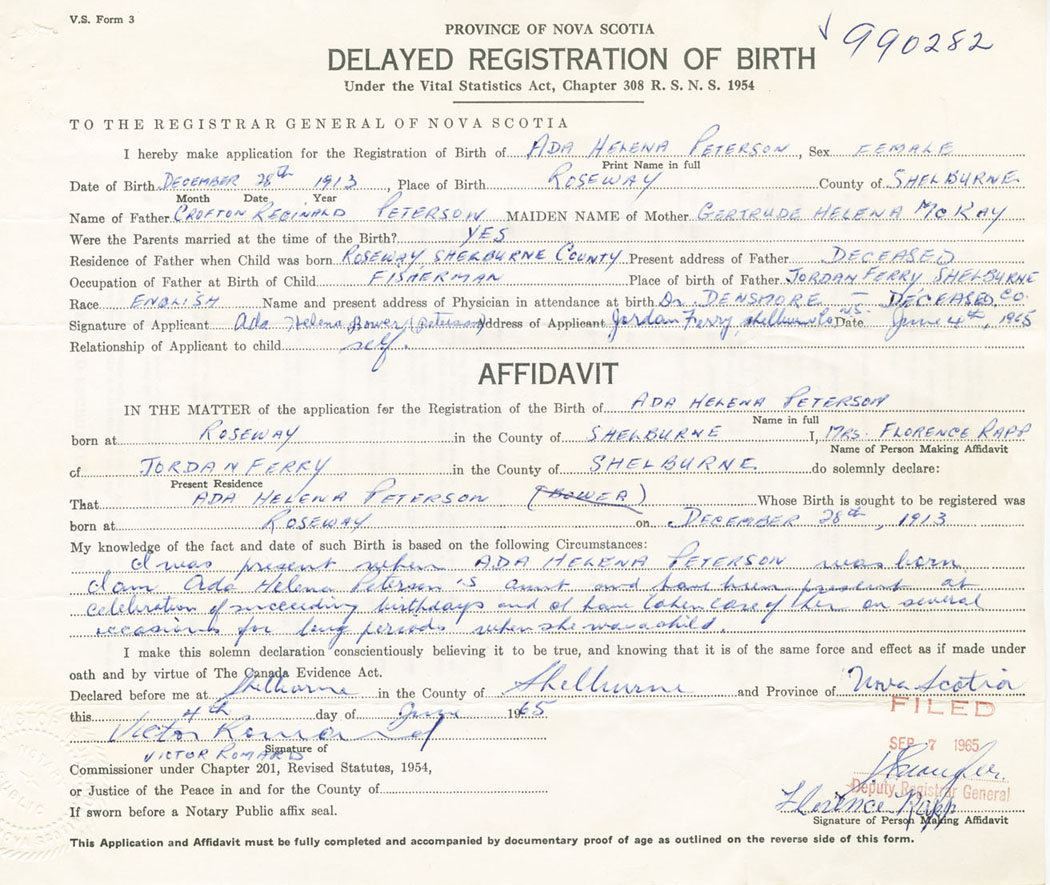 V.S. Form 3
990282
PROVINCE OF NOVA SCOTIA
DELAYED REGISTRATION OF BIRTH
Under the Vital Statistics Act, Chapter 308 R. S. N. S. 1954
TO THE REGISTRAR GENERAL OF NOVA SCOTIA
I hereby make application for the Registration of Birth of ADA HELENA PETERSON, Sex FEMALE
Print Name in full
Date of Birth DECEMBER 28th 1913, Place of Birth ROSEWAY County of SHELBURNE
Month Date Year
Name of Father CROFTON REGINALD PETERSON MAIDEN NAME of Mother GERTRUDE HELENA McKAY
Were the Parents married at the time of the Birth? YES
Residence of Father when Child was born ROSEWAY, SHELBURNE COUNTY Present address of Father DECEASED
Occupation of Father at Birth of Child FISHERMAN Place of birth of Father JORDAN FERRY, SHELBURNE CO.
Race ENGLISH Name and present address of Physician in attendance at birth Dr. DENSMORE - DECEASED
Signature of Applicant Ada Helena Bower (Peterson) Address of Applicant Jordan Ferry, Shelburne Co N.S. Date June 4th, 1965
Relationship of Applicant to child self.
AFFIDAVIT
IN THE MATTER of the application for the Registration of the Birth of ADA HELENA PETERSON
Name in full
born at ROSEWAY in the County of SHELBURNE I, MRS. FLORENCE RAPP
Name of Person Making Affidavit
of JORDAN FERRY in the County of SHELBURNE do solemnly declare:
Present Residence
That ADA HELENA PETERSON (BOWER) Whose Birth is sought to be registered was
born at ROSEWAY on DECEMBER 28th, 1913
My knowledge of the fact and date of such Birth is based on the following Circumstances:
I was present when ADA HELENA PETERSON was born
I am Ada Helena Peterson's aunt and have been present at
celebration of succeeding birthdays and I have taken care of her on several
occasions for long periods when she was a child.
I make this solemn declaration conscientiously believing it to be true, and knowing that it is of the same force and effect as if made under
oath and by virtue of The Canada Evidence Act.
Declared before me at Shelburne in the County of Shelburne and Province of Nova Scotia
this 4th day of June 1965
FILED
SEP 7 1965
Victor Romard
Signature of
VICTOR ROMARD
Commissioner under Chapter 201, Revised Statutes, 1954,
Deputy Registrar General
or Justice of the Peace in and for the County of
Florence Rapp
If sworn before a Notary Public affix seal.
Signature of Person Making Affidavit
This Application and Affidavit must be fully completed and accompanied by documentary proof of age as outlined on the reverse side of this form.